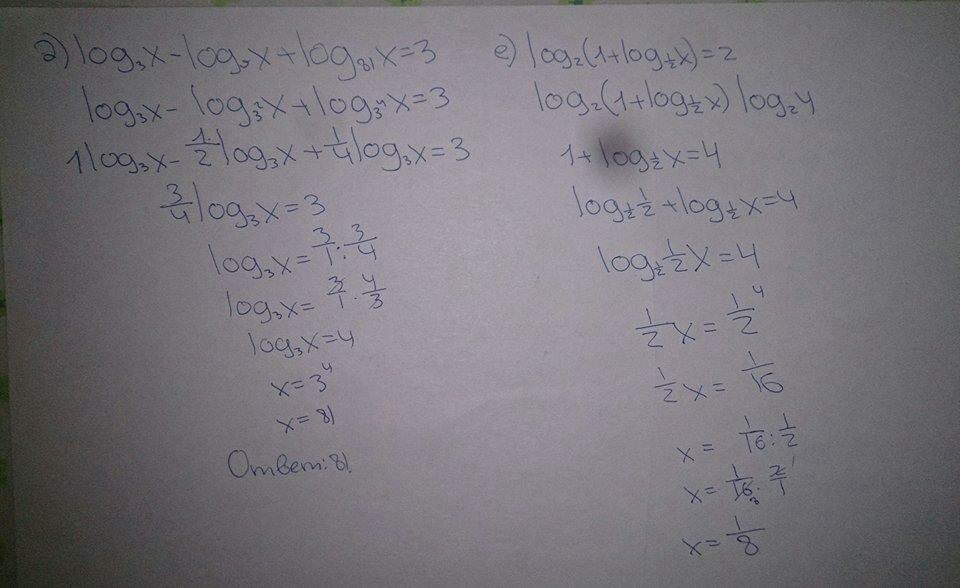 д) log₃x-log₉x+log₈₁x=3
log₃x-log₃²x+log₃⁴x=3
1log₃x-1/2log₃x+1/4log₃x=3
3/4log₃x=3
log₃x=3/1:3/4
log₃x=3/1·4/3
log₃x=4
x=3⁴
x=81
Ответ:81.
е) log₂(1+log½x)=2
log₂(1+log½x) log₂4
1+log½x=4
log½ 1/2+log½x=4
log½ 1/2x=4
1/2x=1/2⁴
1/2x=1/16
x=1/16:1/2
x=1/16·2/1
x=1/8